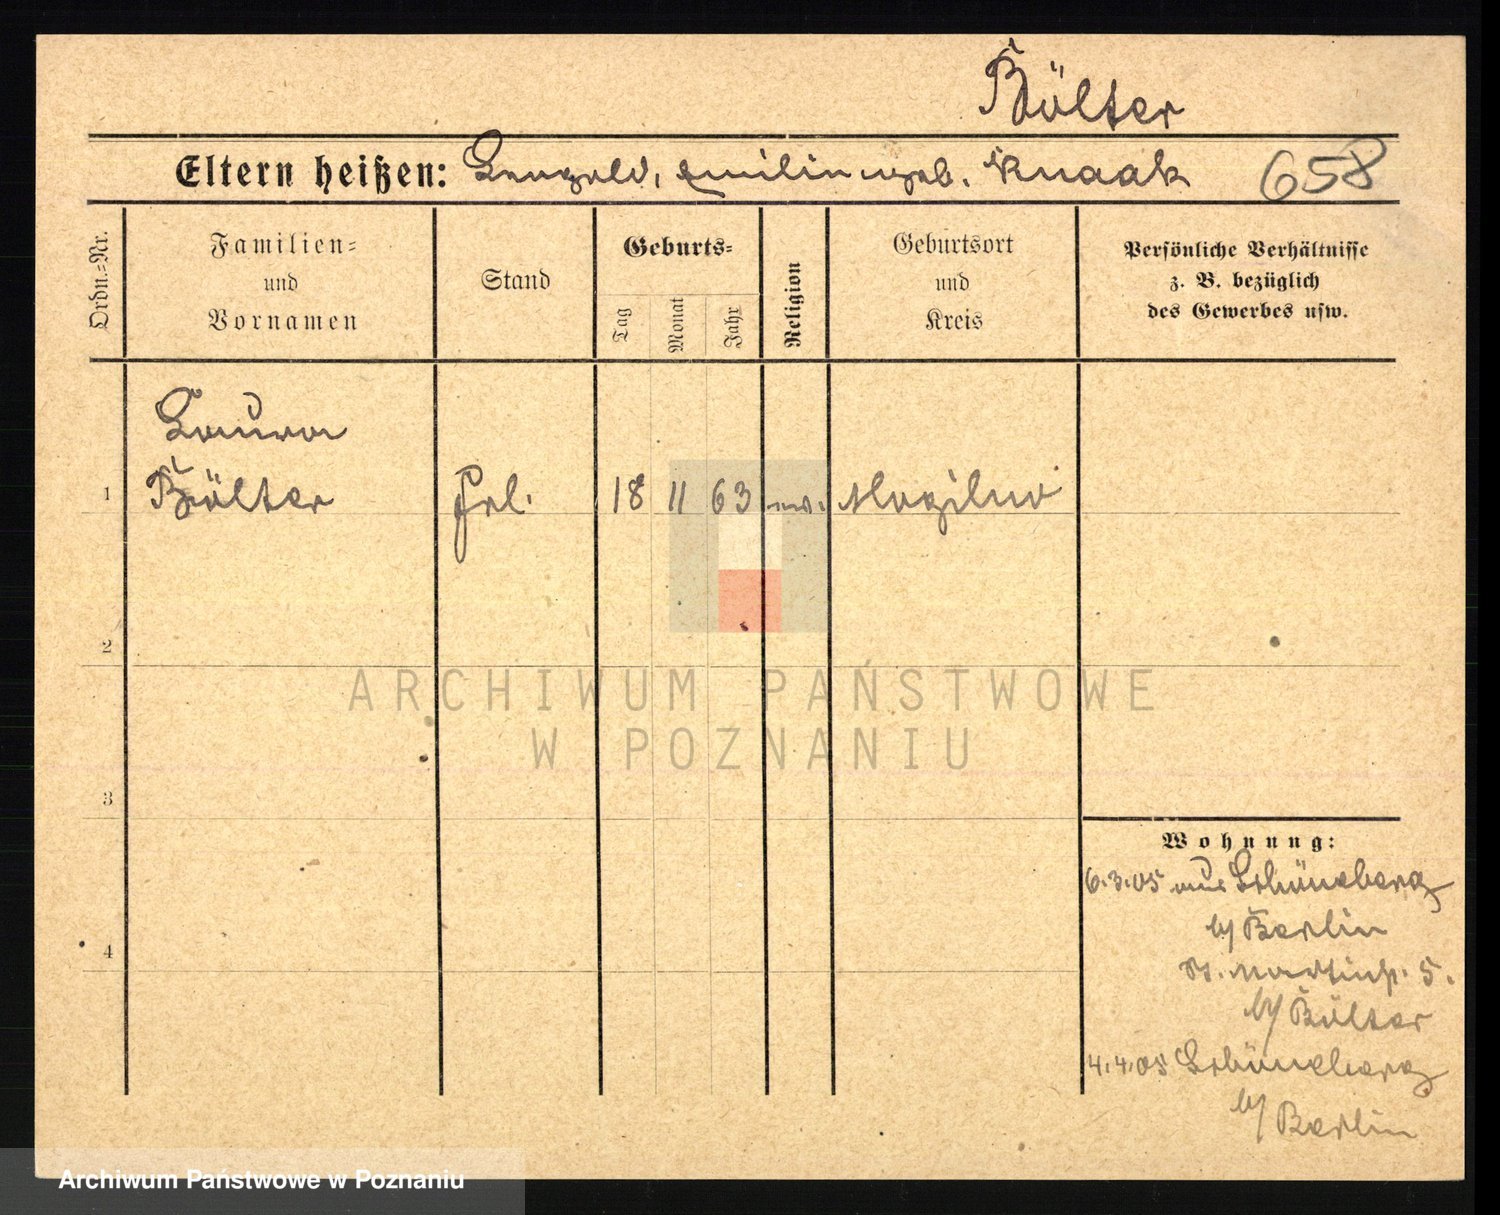 Bölter
Eltern heißen: Leopold, Emilie geb. Knaak 658
Ordn.=Nr.
Familien=
und
Vornamen
Stand
Geburts=
Tag
Monat
Jahr
Religion
Geburtsort
und
Kreis
Persönliche Verhältnisse
z. B. bezüglich
des Gewerbes usw.
Laura
1 Bölter Frl. 18 11 63 ev. Mogilno
2
ARCHIWUM PAŃSTWOWE
W POZNANIU
3
Wohnung:
6.3.05 aus Schöneberg
b/ Berlin
St. Martinstr. 5.
b/ Bölter
4
4.4.05 Schöneberg
b/ Berlin
Archiwum Państwowe w Poznaniu